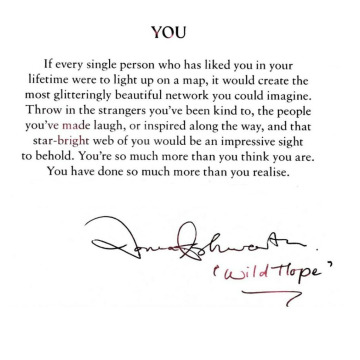 YOU
If every single person who has liked you in your
lifetime were to light up on a map, it would create the
most glitteringly beautiful network you could imagine.
Throw in the strangers you've been kind to, the people
you've made laugh, or inspired along the way, and that
star-bright web of you would be an impressive sight
to behold. You're so much more than you think you are.
You have done so much more than you realise.
Donna Ashworth.
"Wild Hope"